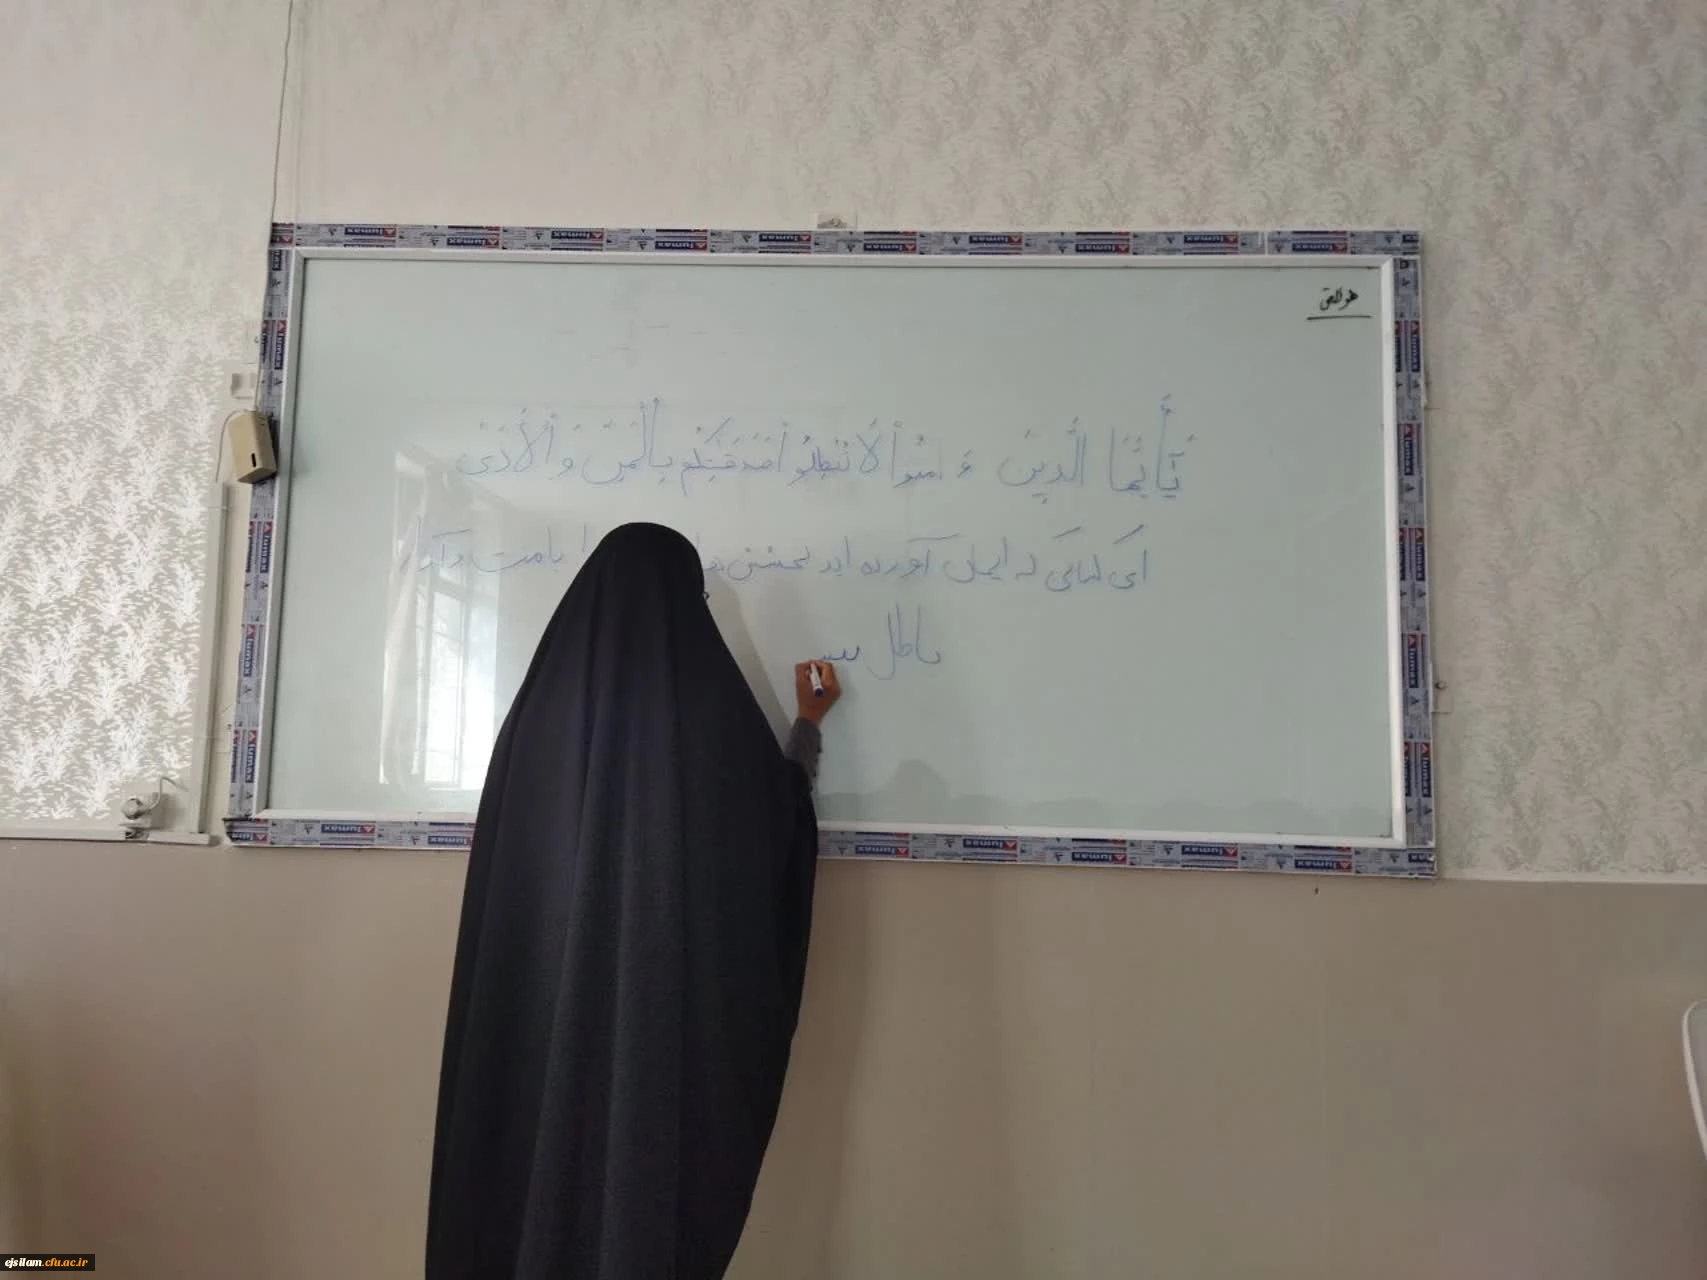 هوالحق
يَٰٓأَيُّهَا الَّذِينَ ءَامَنُواْ لَا تُبْطِلُواْ صَدَقَٰتِكُم بِالْمَنِّ وَالْأَذَىٰ
ای کسانی که ایمان آورده اید بخشش با منت و آزار
باطل
lumax
ejsilam.cfu.ac.ir